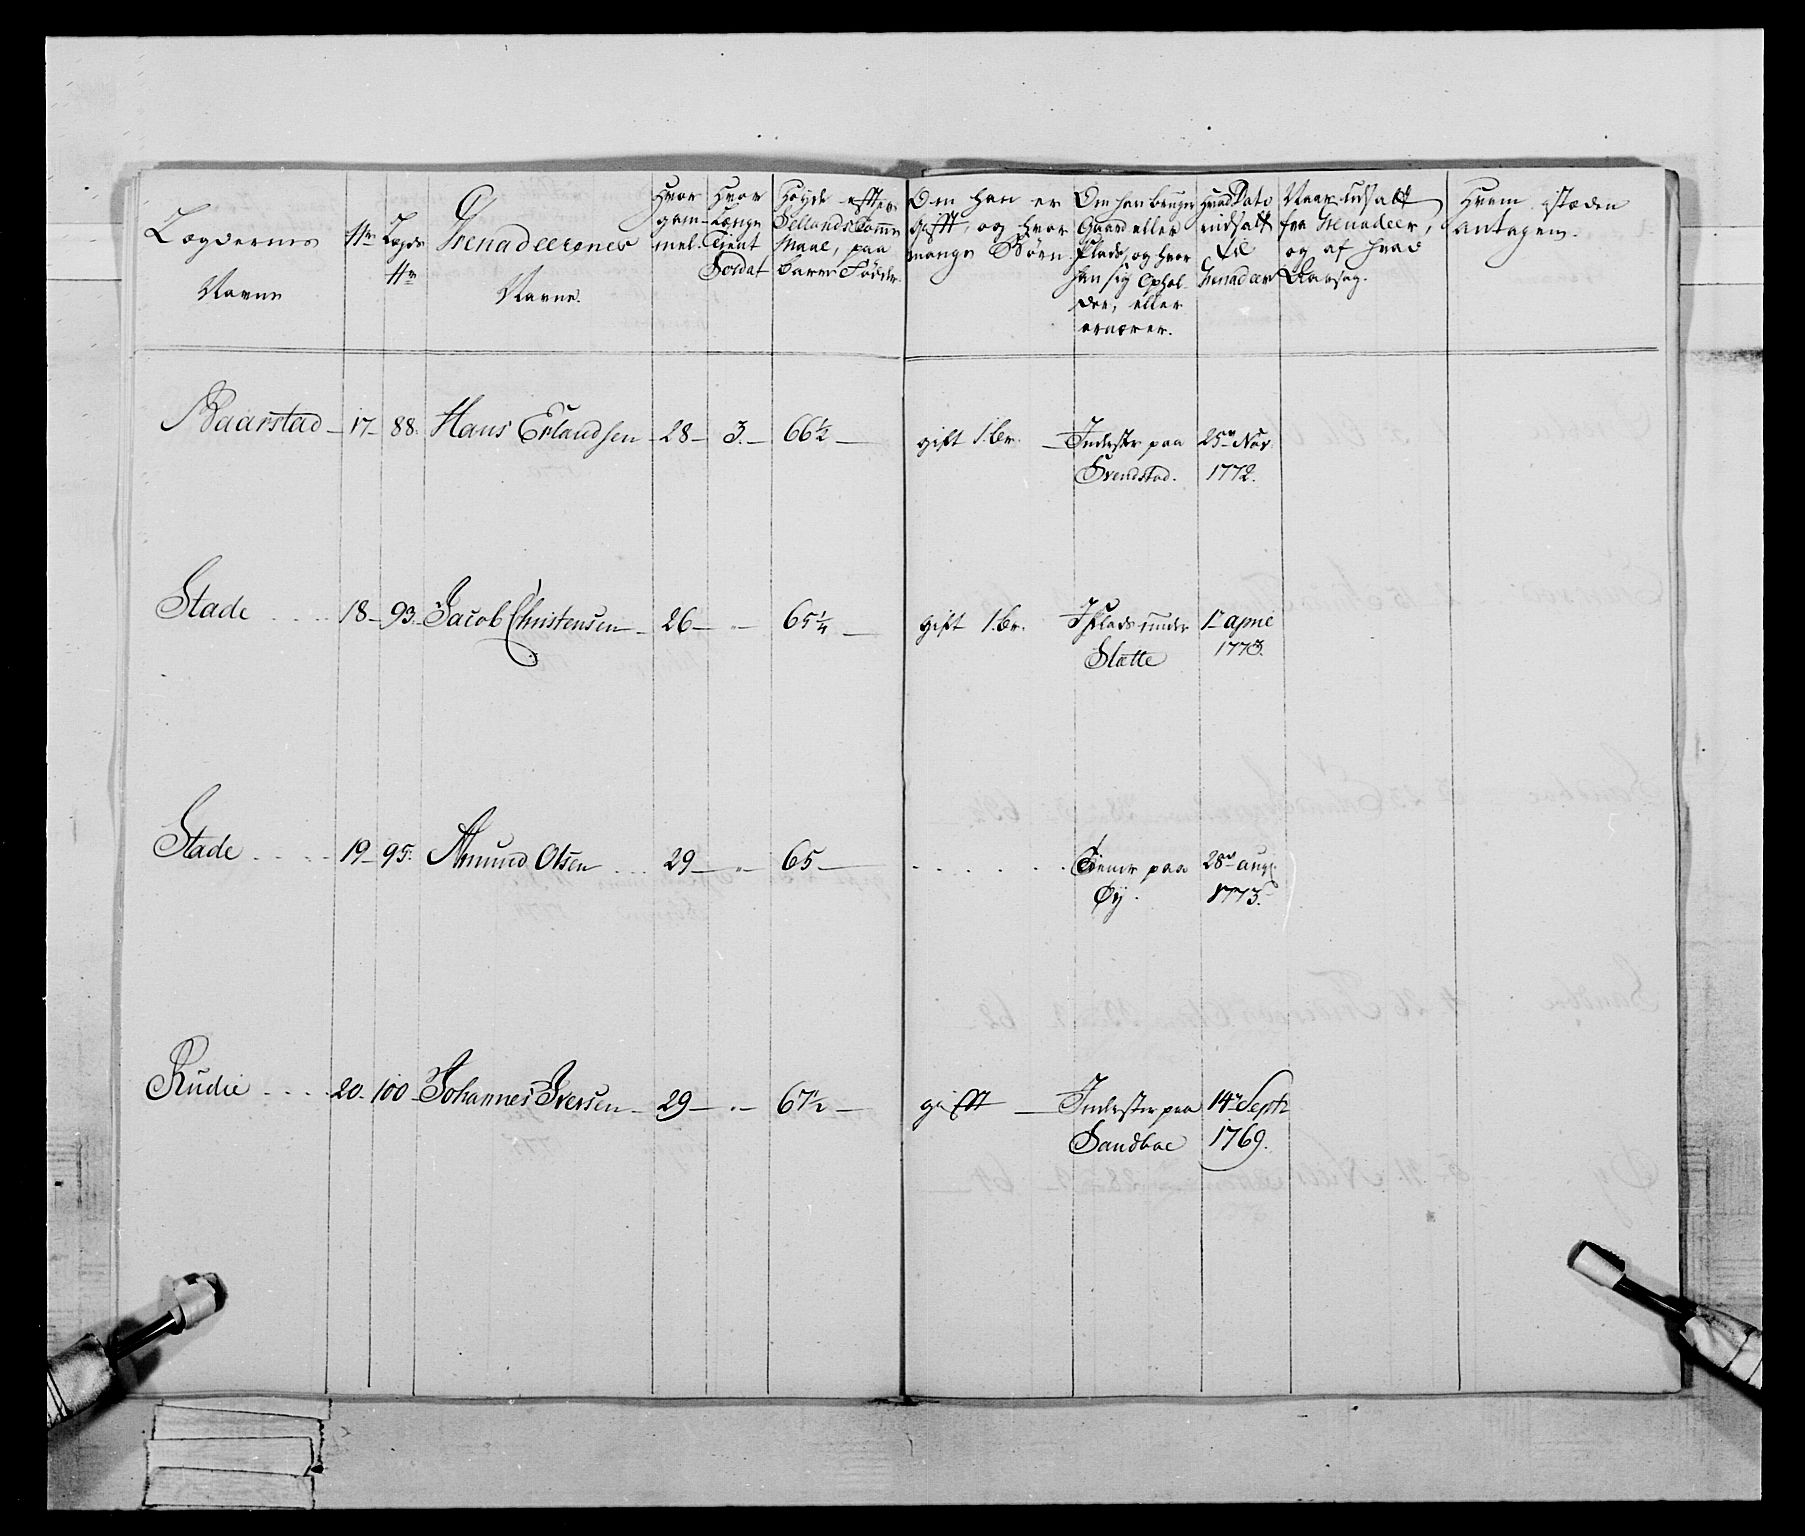 Lægdernes Navne
Nr
Lægds Nr
Grenadeerernes Navne.
Hvor gam- mel
Hvor Længe Tient Soldat
Høyde efter Sellands Tomme Maal, paa bare Fødder.
Om han er gift, og hvor mange Børn
Om han bruger Gaard eller Plads, og hvor han sig Ophol- der, eller ernærer.
Hvad Dato indsatt til Grenadeer
Naar udsatt fra Grenadeer, og af hvad Aarsag.
Hvem istæden antagen.
Baarstad – 17 – 88. Hans Erlandsen – 28 – 3. – 66½ – gift 1. br. – Inderste paa 25de Nov:
Svendstad. 1772.
Stade .... 18 – 93. Jacob Christensen – 26 – „ – 65¼ – gift 1. br. Plads under 1te april
Slætte 1773.
Stade .... 19 – 95. Amund Olsen ... 29 – „ – 65 – ...... Tiener paa 28de aug.
Øy. 1773.
Rudie .... 20. 100 – Johannes Iversen – 29 – „ – 67½ – gift – Inderster paa 14de Septr
Sandboe 1769.